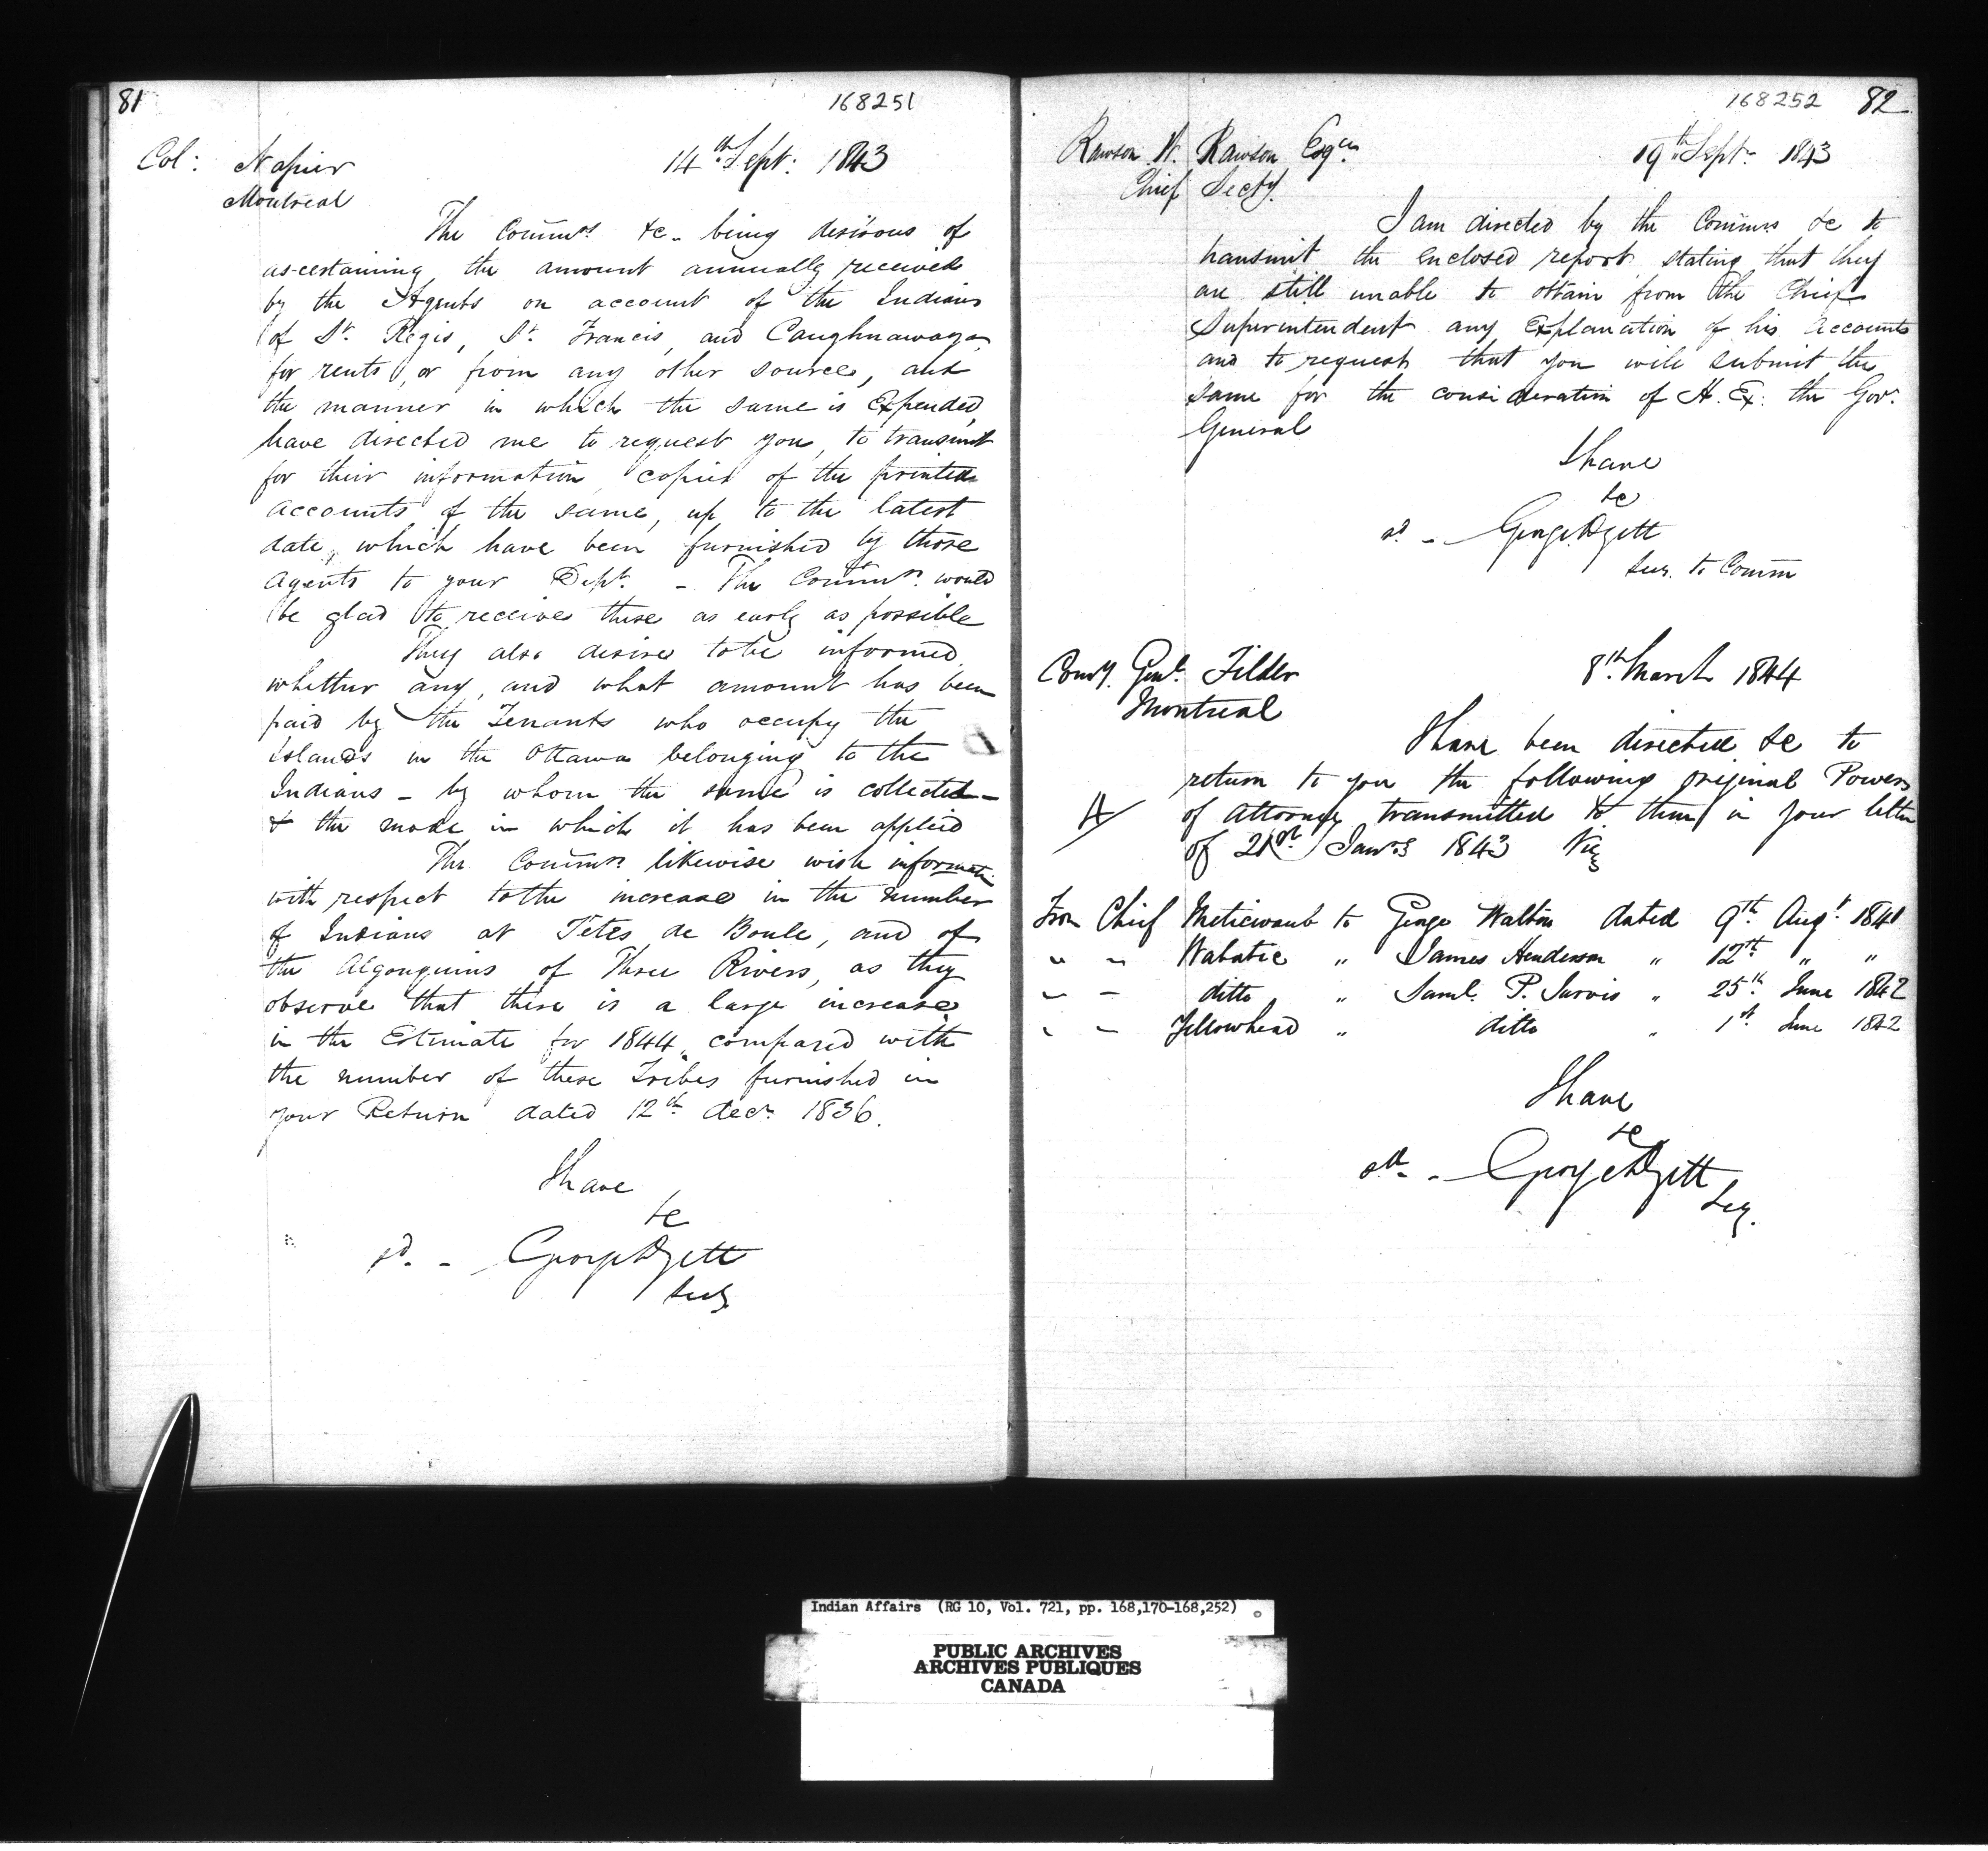 81
168251
Col: Napier
Montreal
14th Sept: 1843
The Commrs &c. being desirous of
ascertaining the amount annually received
by the Agents on account of the Indians
of St. Regis, St. Francis, and Caughnawaga,
for rents, or from any other source, and
the manner in which the same is Expended,
have directed me to request you, to transmit
for their information, copies of the printed
accounts of the same, up to the latest
date, which have been furnished by those
Agents to your Dept. - The Commrs. would
be glad to receive these as early as possible
They also desire to be informed
whether any, and what amount has been
paid by the Tenants who occupy the
Islands in the Ottawa belonging to the
Indians - by whom the same is collected -
& the mode in which it has been applied
The Commrs. likewise wish informatn
with respect to the increase in the number
of Indians at Tetes de Boule, and of
the Algonquins of Three Rivers, as they
observe that there is a large increase
in the Estimate for 1844, compared with
the number of these Tribes furnished in
your Return dated 12th decr. 1836.
I have
&c
sd. - George Dyett
Secy
168252 82
Rawson W. Rawson Esqre.
Chief Secty.
19th Septr. 1843
I am directed by the Commrs &c to
transmit the enclosed report stating that they
are still unable to obtain from the Chief
Superintendent any Explanation of his accounts
and to request that you will submit the
same for the consideration of H. Ex: the Gov.
General
I have
&c
sd. - George Dyett
Secy. to Comm
Comy. Genl. Filder
Montreal
8th March 1844
I have been directed &c to
return to you the following original Powers
of Attorney transmitted to them in your letter
of 21st Jany 1843 Viz
A
From Chief Meticwaub to George Walton dated 9th Augt. 1841
" " Wabatic " James Henderson " 12th " "
" " ditto " Saml. P. Jarvis " 25th June 1842
" " Yellowhead " ditto " 1st June 1842
I have
&c
sd. - George Dyett
Secy.
Indian Affairs (RG 10, Vol. 721, pp. 168,170-168,252)
PUBLIC ARCHIVES
ARCHIVES PUBLIQUES
CANADA